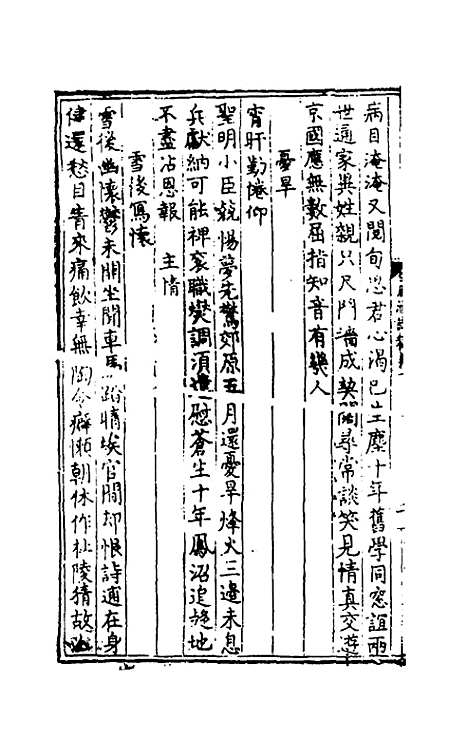 病目淹淹又閱旬忽君心渴已生塵十年舊學同窓誼兩
世通家異姓親只尺門墻成契闊尋常談笑見情真交遊
京國應無數屈指知音有幾人
憂旱
宵旰勤倦仰
聖明小臣兢惕夢先驚郊原五月還憂旱烽火三邊未息
兵獻納可能裨袞職燮調須遣慰蒼生十年鳳沼追趍地
不盡沾恩報主情
雪後寫懷
雪後幽懷鬱未開坐聞車馬踏晴埃官閒却恨詩逋在身
健還愁目眚來痛飲幸無陶令癖懶朝休作杜陵猜故